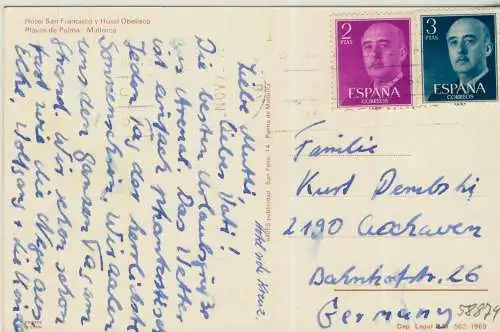 Hotel San Francisco y Hotel Obelisco
Playas de Palma. Mallorca
Liebe Mutti,
lieber Vati!
Die besten Urlaubsgrüße
aus Arenal. Das Wetter
ist einfach phantastisch
Jeden Tag der herrlichste
Sonnenschein. Wir aalen
uns den ganzen Tag am
Strand. Wir sehen schon
fast wie die Neger aus
Eche, Wolfgang + die Kinder
Hotel siehe Kreuz.
San Felio, 14. Palma de Mallorca
2
PTAS
ESPAÑA
CORREOS
3
PTAS
ESPAÑA
CORREOS
Familie
Kurt Dembski
2190 Cuxhaven
Bahnhofstr. 26
Germany
58879
Dep. Legal B.M. 562-1969